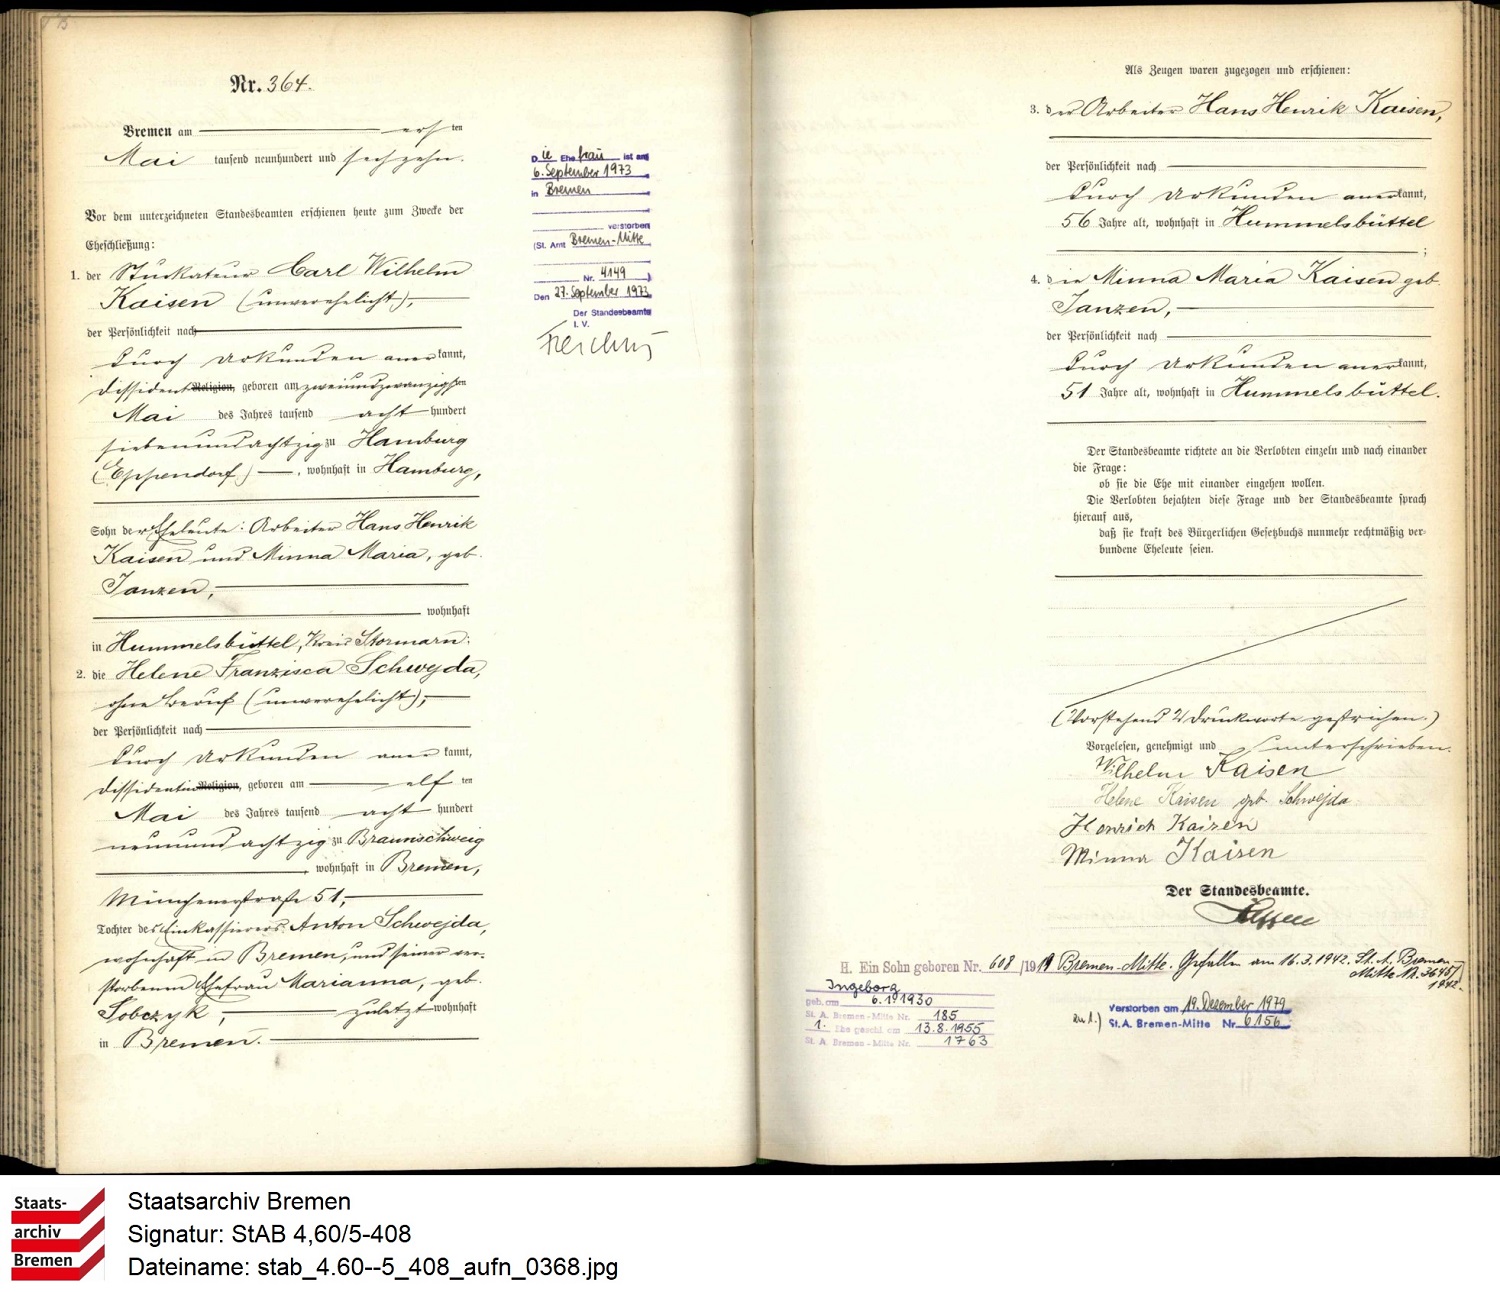 Nr. 364.
Bremen am ersten
Mai tausend neunhundert und sechzehn.
Vor dem unterzeichneten Standesbeamten erschienen heute zum Zwecke der
Eheschließung:
1. der Stuckateur Carl Wilhelm
Kaisen (unverehelicht),
der Persönlichkeit nach
durch Urkunden anerkannt,
dissident Religion, geboren am zweiundzwanzigsten
Mai des Jahres tausend achthundert
siebenundachtzig zu Hamburg
(Eppendorf), wohnhaft in Hamburg,
Sohn der Eheleute: Arbeiter Hans Henrik
Kaisen und Minna Maria, geb.
Janzen,
wohnhaft
in Hummelsbüttel, Kreis Stormarn.
2. die Helene Franzisca Schwejda,
ohne Beruf (unverehelicht),
der Persönlichkeit nach
durch Urkunden anerkannt,
dissidentin Religion, geboren am elften
Mai des Jahres tausend achthundert
neunundachtzig zu Braunschweig
wohnhaft in Bremen,
Münchenerstraße 51,
Tochter des Einkassierers Anton Schwejda,
wohnhaft in Bremen, und seiner ver-
storbenen Ehefrau Marianna, geb.
Sobczyk, zuletzt wohnhaft
in Bremen.
Die Ehefrau ist am
6. September 1973
in Bremen
verstorben
(St. Amt Bremen-Mitte
Nr. 4149)
Den 27. September 1973
Der Standesbeamte
I. V.
Als Zeugen waren zugezogen und erschienen:
3. der Arbeiter Hans Henrik Kaisen,
der Persönlichkeit nach
durch Urkunden anerkannt,
56 Jahre alt, wohnhaft in Hummelsbüttel
;
4. die Minna Maria Kaisen geb.
Janzen,
der Persönlichkeit nach
durch Urkunden anerkannt,
51 Jahre alt, wohnhaft in Hummelsbüttel.
Der Standesbeamte richtete an die Verlobten einzeln und nach einander
die Frage:
ob sie die Ehe mit einander eingehen wollen.
Die Verlobten bejahten diese Frage und der Standesbeamte sprach
hierauf aus,
daß sie kraft des Bürgerlichen Gesetzbuchs nunmehr rechtmäßig ver-
bundene Eheleute seien.
(Vorstehend 2 Druckworte gestrichen.)
Vorgelesen, genehmigt und unterschrieben.
Wilhelm Kaisen
Helene Kaisen geb. Schwejda
Henrich Kaisen
Minna Kaisen
Der Standesbeamte.
H. Ein Sohn geboren Nr. 608/1919 Bremen-Mitte. Gefallen am 16.3.1942. St. A. Bremen-
Mitte N. 3645/
1942.
Ingeborg
geb. am 6. 1930
St. A. Bremen-Mitte Nr. 185
1. Ehe geschl am 13.8.1955
St. A. Bremen-Mitte Nr. 1763
zu 1.) Verstorben am 19. Dezember 1979
St.A. Bremen-Mitte Nr 6156
Staats-
archiv
Bremen
Staatsarchiv Bremen
Signatur: StAB 4,60/5-408
Dateiname: stab_4.60--5_408_aufn_0368.jpg